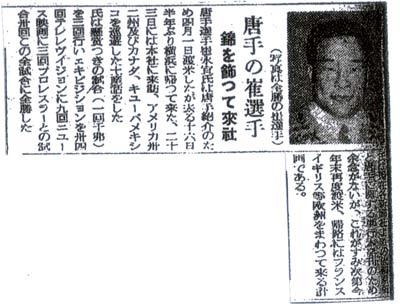 （写真は全勝の崔選手）
唐手の崔選手
錦を飾つて來社
唐手選手崔永宜氏は唐手紹介のた
め四月一日渡米したが去る十六日
半年ぶり横浜に帰つて来た、二十
三日には本社に来訪、アメリカ卅
二州及びカナダ、キユーバメキシ
コを巡遊した土産話をした
氏は懸賞つきの試合（一回千弗）
を三回行いエキジビシヨンを卅四
回テレヴイジヨンに九回ニユー
ス映画に三回プロレスラーとの試
合卅回この全試合に全勝した
に関する 刊のため
余念がないが、これがすみ次第今
年末再度渡米、帰路にはフランス
イギリス等欧洲をまわつて来る計
画である。